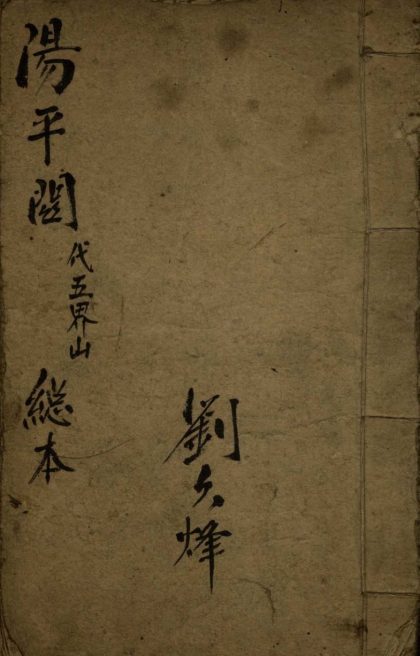 陽平関
代五界山
総本
劉久烽